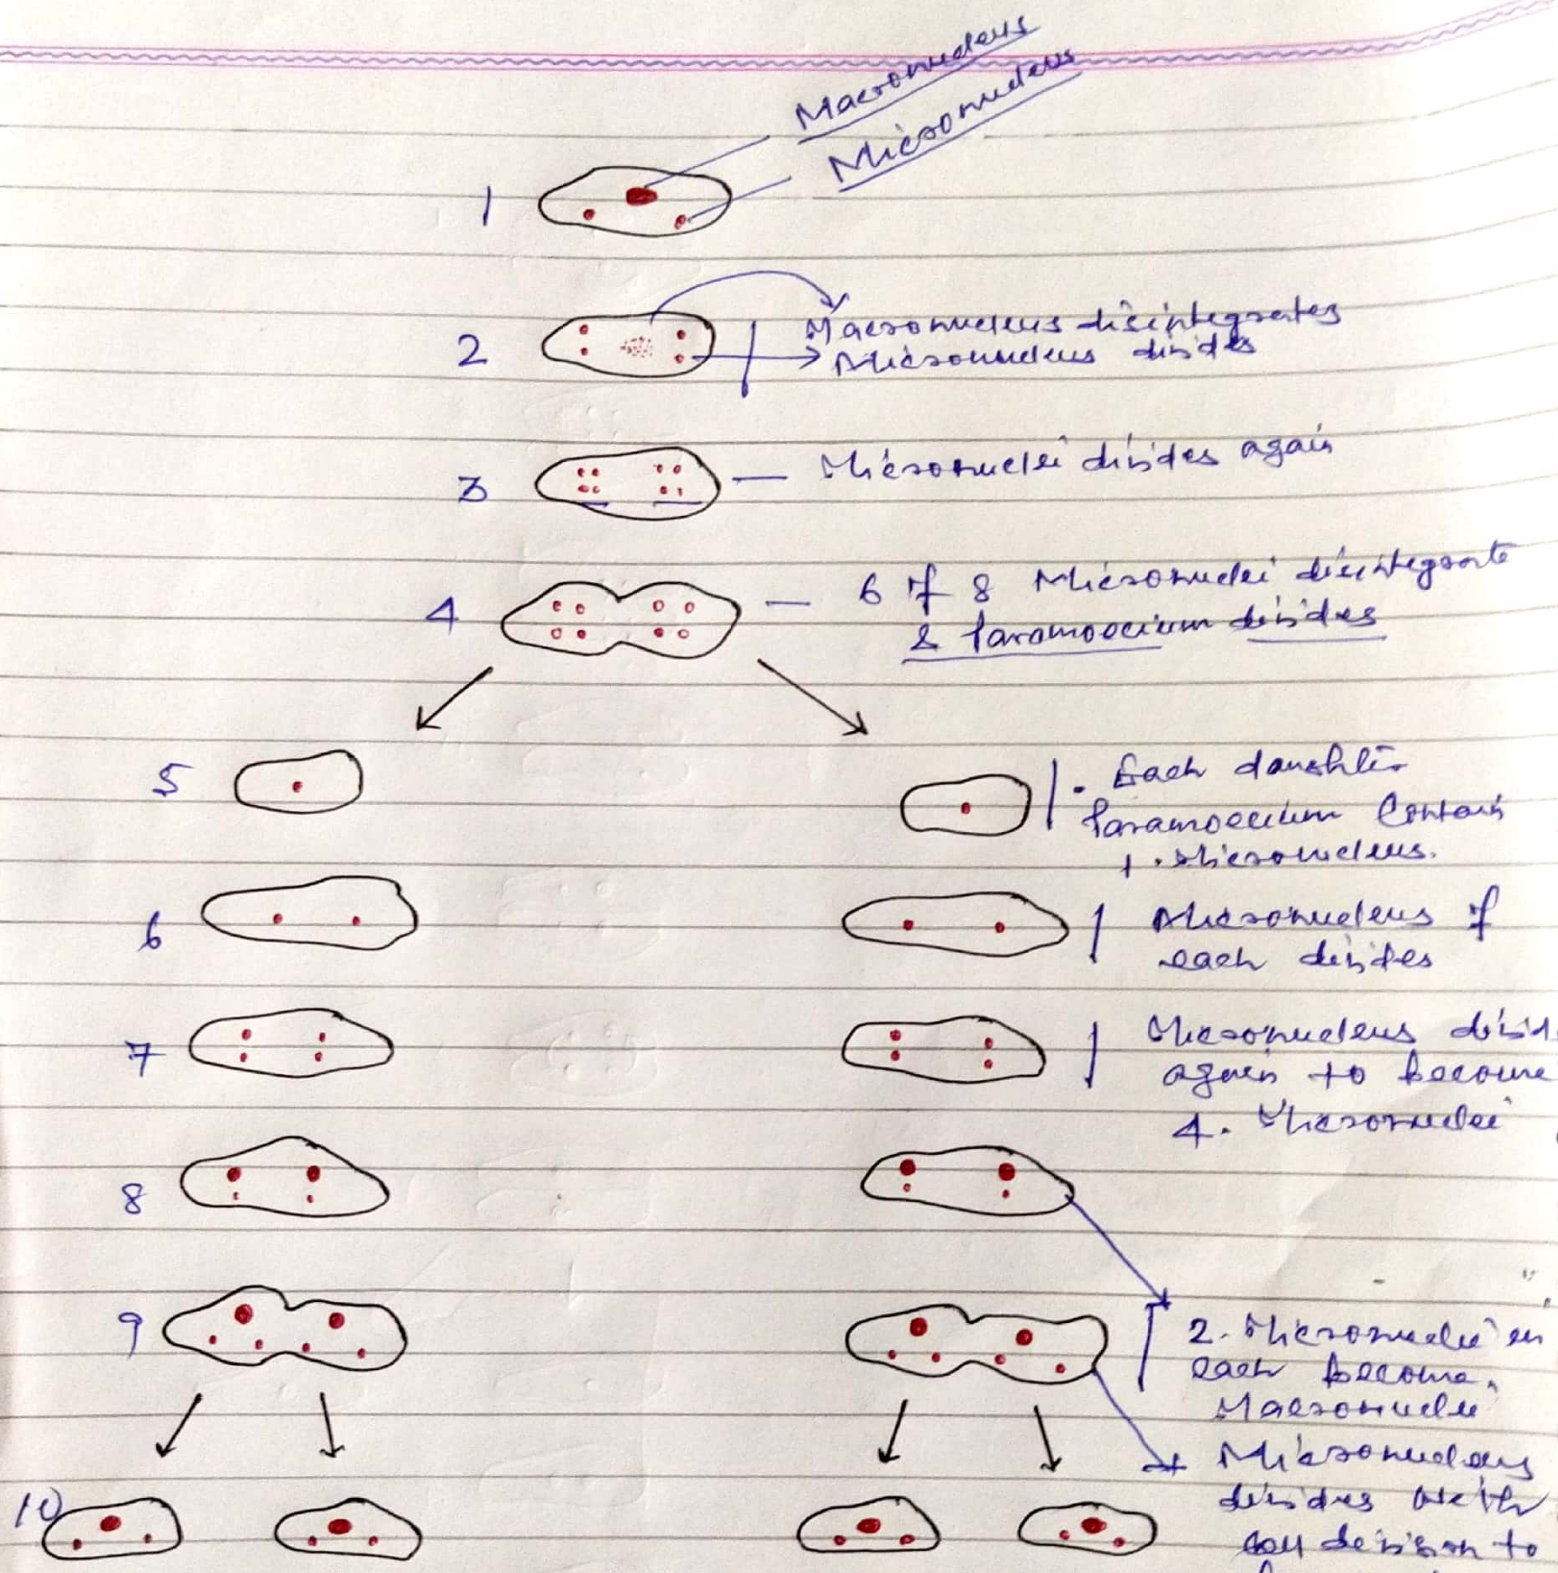 Macronucleus
Micronucleus
1
2
Macronucleus disintegrates
Micronucleus divides
3
Micronuclei divides again
4
6 of 8 Micronuclei disintegrate
& Paramoecium divides
5
. Each daughter
Paramoecium Contain
1. Micronucleus.
6
Micronucleus of
each divides
7
Micronucleus divid
again to become
4. Micronuclei
8
9
2. Micronuclei in
each become
Macronuclei
Micronucleus
divides with
cell division to
10